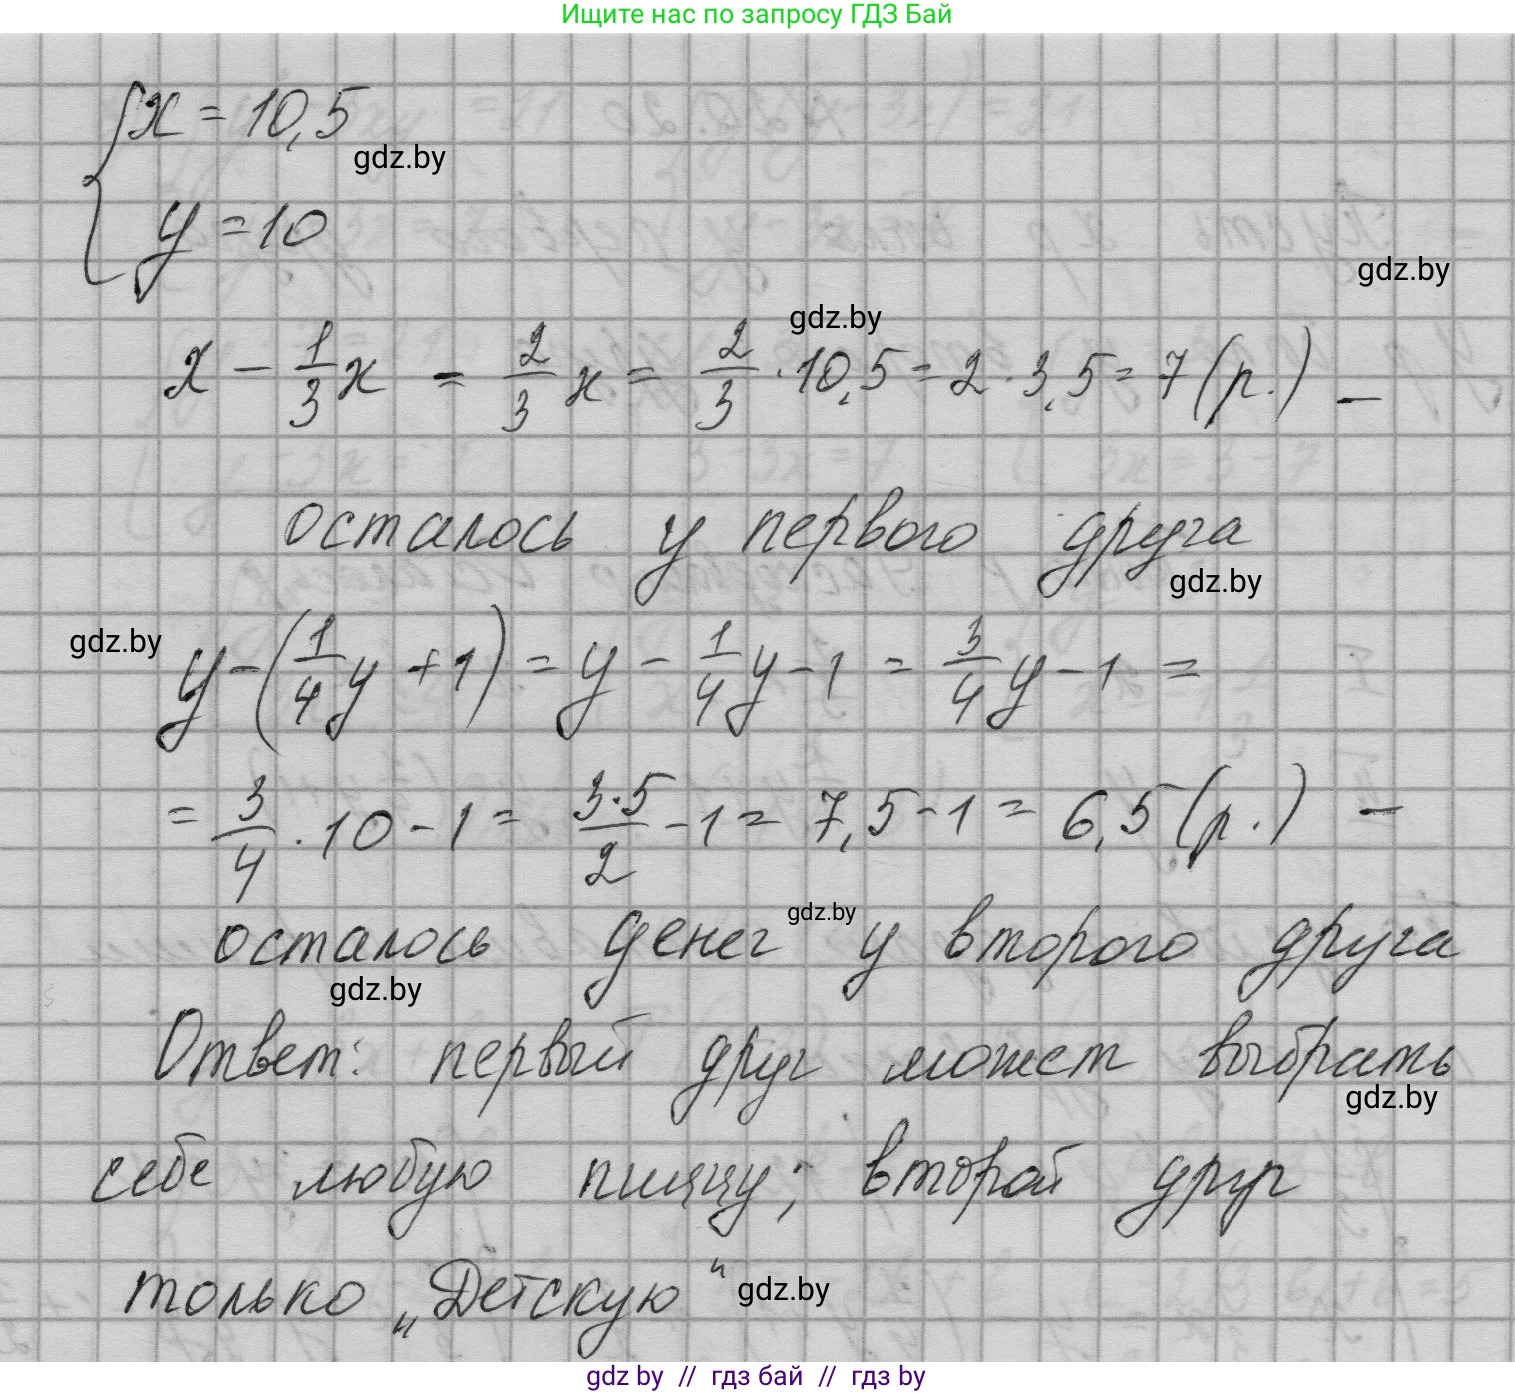 Ищите нас по запросу ГДЗ Бай
{ x = 10,5
gdz.by
y = 10
gdz.by
gdz.by
x - 1/3 x = 2/3 x = 2/3 · 10,5 = 2 · 3,5 = 7 (р.) –
осталось у первого друга
gdz.by
gdz.by
y - (1/4 y + 1) = y - 1/4 y - 1 = 3/4 y - 1 =
= 3/4 · 10 - 1 = 3·5/2 - 1 = 7,5 - 1 = 6,5 (р.) –
gdz.by
осталось денег у второго друга
gdz.by
Ответ: первый друг может выбрать
gdz.by
себе любую пиццу; второй друг
только „Детскую"
gdz.by
gdz by // гдз бай // гдз by